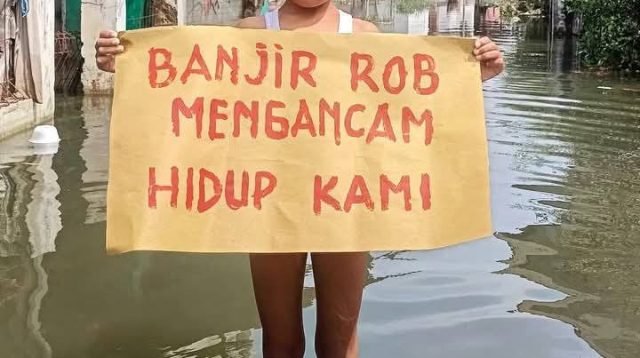 BANJIR ROB
MENGANCAM
HIDUP KAMI